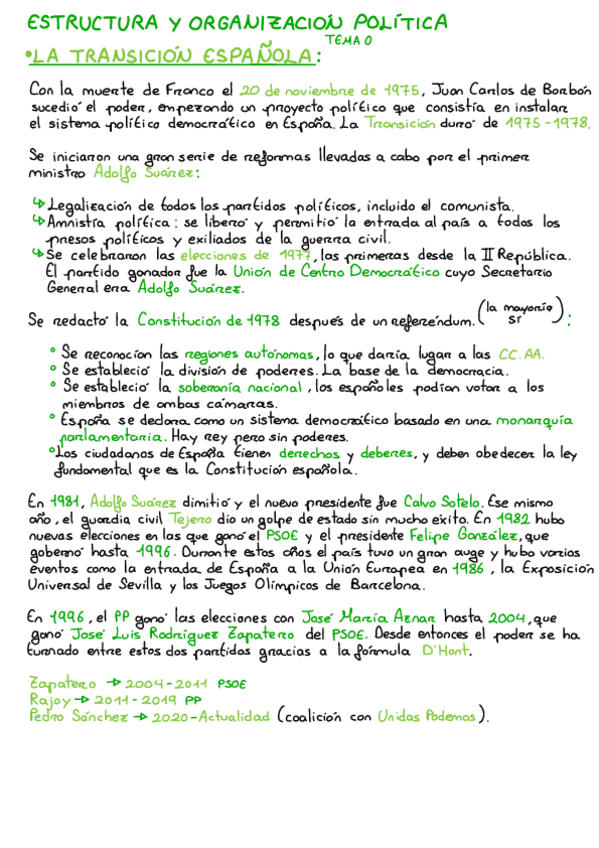 ESTRUCTURA Y ORGANIZACIÓN POLÍTICA
TEMA 0
•LA TRANSICIÓN ESPAÑOLA:
Con la muerte de Franco el 20 de noviembre de 1975, Juan Carlos de Borbón
sucedió el poder, empezando un proyecto político que consistía en instalar
el sistema político democrático en España. La Transición duró de 1975-1978.
Se iniciaron una gran serie de reformas llevadas a cabo por el primer
ministro Adolfo Suárez:
↳ Legalización de todos los partidos políticos, incluido el comunista.
↳ Amnistía política: se liberó y permitió la entrada al país a todos los
presos políticos y exiliados de la guerra civil.
↳ Se celebraron las elecciones de 1977, las primeras desde la II República.
El partido ganador fue la Unión de Centro Democrático cuyo Secretario
General era Adolfo Suárez.
Se redactó la Constitución de 1978 después de un referéndum. (la mayoría sí):
° Se reconocían las regiones autónomas, lo que daría lugar a las CC.AA.
° Se estableció la división de poderes. La base de la democracia.
° Se estableció la soberanía nacional, los españoles podían votar a los
miembros de ambas cámaras.
° España se declara como un sistema democrático basado en una monarquía
parlamentaria. Hay rey pero sin poderes.
° Los ciudadanos de España tienen derechos y deberes, y deben obedecer la ley
fundamental que es la Constitución española.
En 1981, Adolfo Suárez dimitió y el nuevo presidente fue Calvo Sotelo. Ese mismo
año, el guardia civil Tejero dio un golpe de estado sin mucho éxito. En 1982 hubo
nuevas elecciones en las que ganó el PSOE y el presidente Felipe González, que
gobernó hasta 1996. Durante estos años el país tuvo un gran auge y hubo varios
eventos como la entrada de España a la Unión Europea en 1986, la Exposición
Universal de Sevilla y los Juegos Olímpicos de Barcelona.
En 1996, el PP ganó las elecciones con José María Aznar hasta 2004, que
ganó José Luis Rodríguez Zapatero del PSOE. Desde entonces el poder se ha
turnado entre estos dos partidos gracias a la fórmula D'Hont.
Zapatero → 2004-2011 PSOE
Rajoy → 2011-2019 PP
Pedro Sánchez → 2020-Actualidad (coalición con Unidas Podemos).